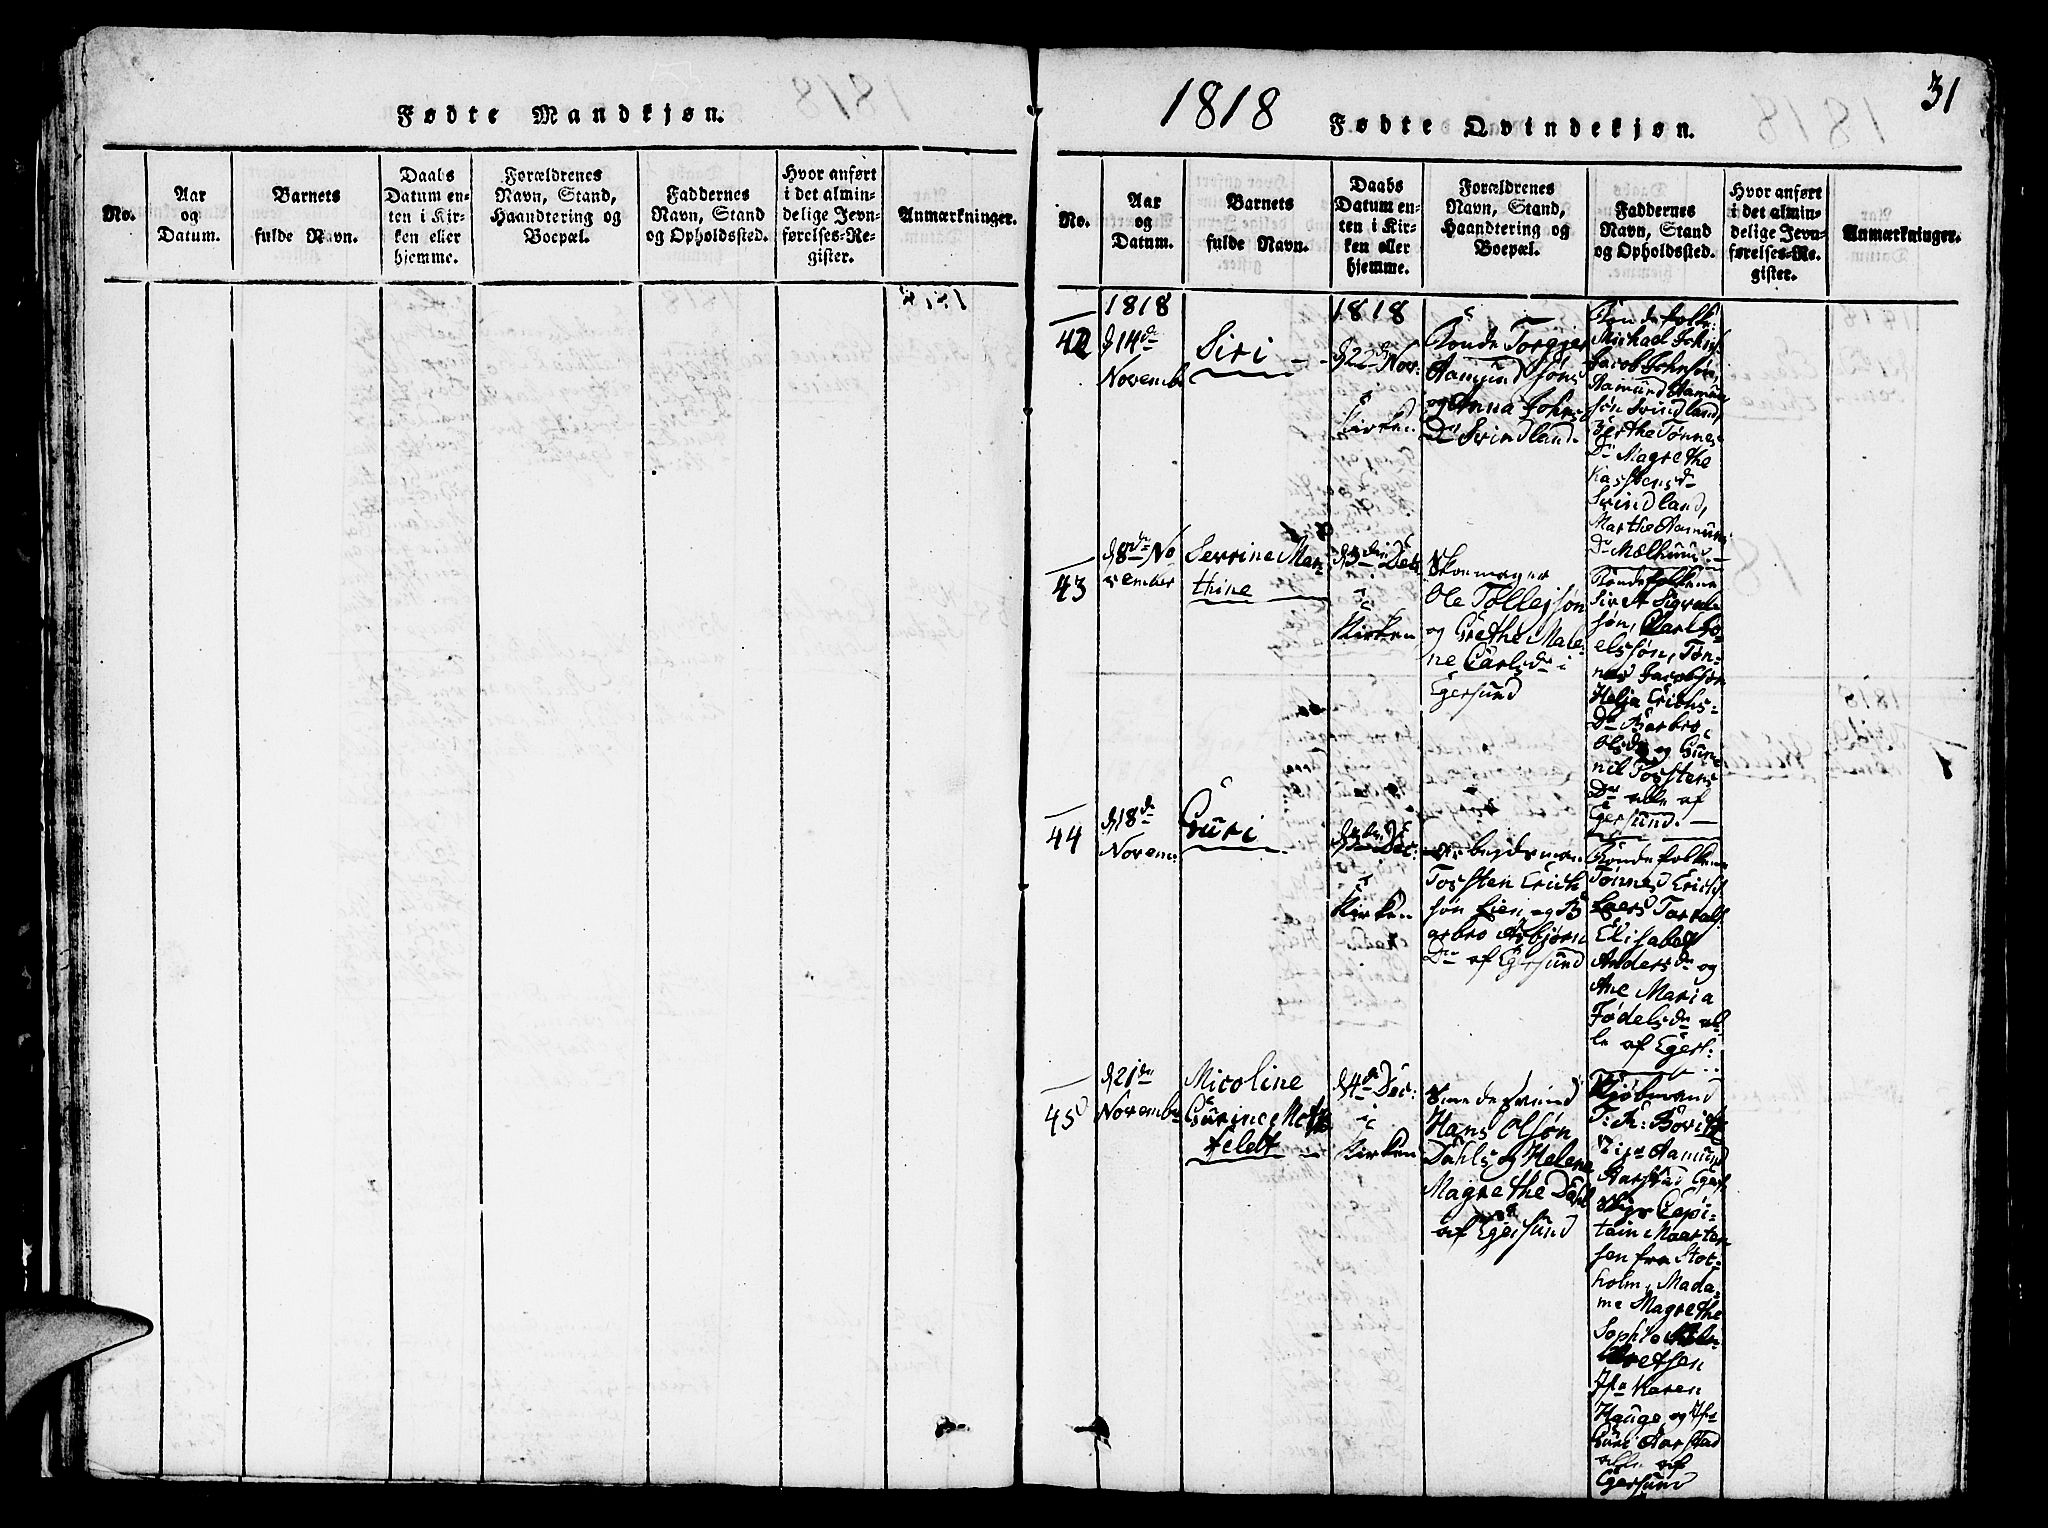 Fødte Mandkjøn.
No.
Aar
og
Datum.
Barnets
fulde Navn.
Daabs
Datum en-
ten i Kir-
ken eller
hjemme.
Forældrenes
Navn, Stand,
Haandtering og
Boepæl.
Faddernes
Navn, Stand
og Opholdssted.
Hvor anført
i det almin-
delige Jevn-
førelses-Re-
gister.
Anmærkninger.
31
1818 Fødte Qvindekjøn.
No.
Aar
og
Datum.
Barnets
fulde Navn.
Daabs
Datum en-
ten i Kir-
ken eller
hjemme.
Forældrenes
Navn, Stand,
Haandtering og
Boepæl.
Faddernes
Navn, Stand
og Opholdssted.
Hvor anført
i det almin-
delige Jevn-
førelses-Re-
gister.
Anmærkninger.
42
1818
14de
Novembr
Siri
1818
22de Nov:
i
Kirken
Bonde Torgjer
Aamundsøn
og Anna Johns
Dr Svindland.
Bondefolk:
Michael
Jacob Johnsøn,
Aamund Aamun
søn Svindland,
Berthe Tønnes
Dr Magrethe
Dr
Svindland,
Marthe Aamuns
Dr
43
8de No
vember
Serrine Mar
thine
Dec:
i
Kirken
Skoemager
Ole Tollejsøn
og Grethe Male-
ne Carlsdr i
Egersund
Bondefolkene
Sivert Sigval-
søn, Carl Jo-
elssøn, Tøn-
nes Jacobsøn
Helja Erichs-
Dr Barbro
Olsdr og Gun-
nil Torstens
Dr alle af
Egersund.
44
18de
Novem:
Guri
Dec:
i
Kirken
Arbejdsman
Torsten Erich
søn Eien og B
arbro Asbjørn
Dr af Egersund
Bondefolkene
Tønnes Erichs
Laers Torkels
Elisabet
Andersdr og
Ane Maria
Fødelsdr al-
le af Egers:
45
21de
Novembr
Nicoline
Gurine Motz
feldt
4de Dec:
i
Kirken
Hans Olsøn
Dahl og Helene
Magrethe Dahl
af Egersund
Kjøbmand
Aamund
Aarstad Egers
Capi-
tain Maarten
sen fra Stok-
holm, Mada-
me Magrethe
Sophie
Jfr Karen
Hauge og Jfr
Guri Aarstad
alle af
Egersund